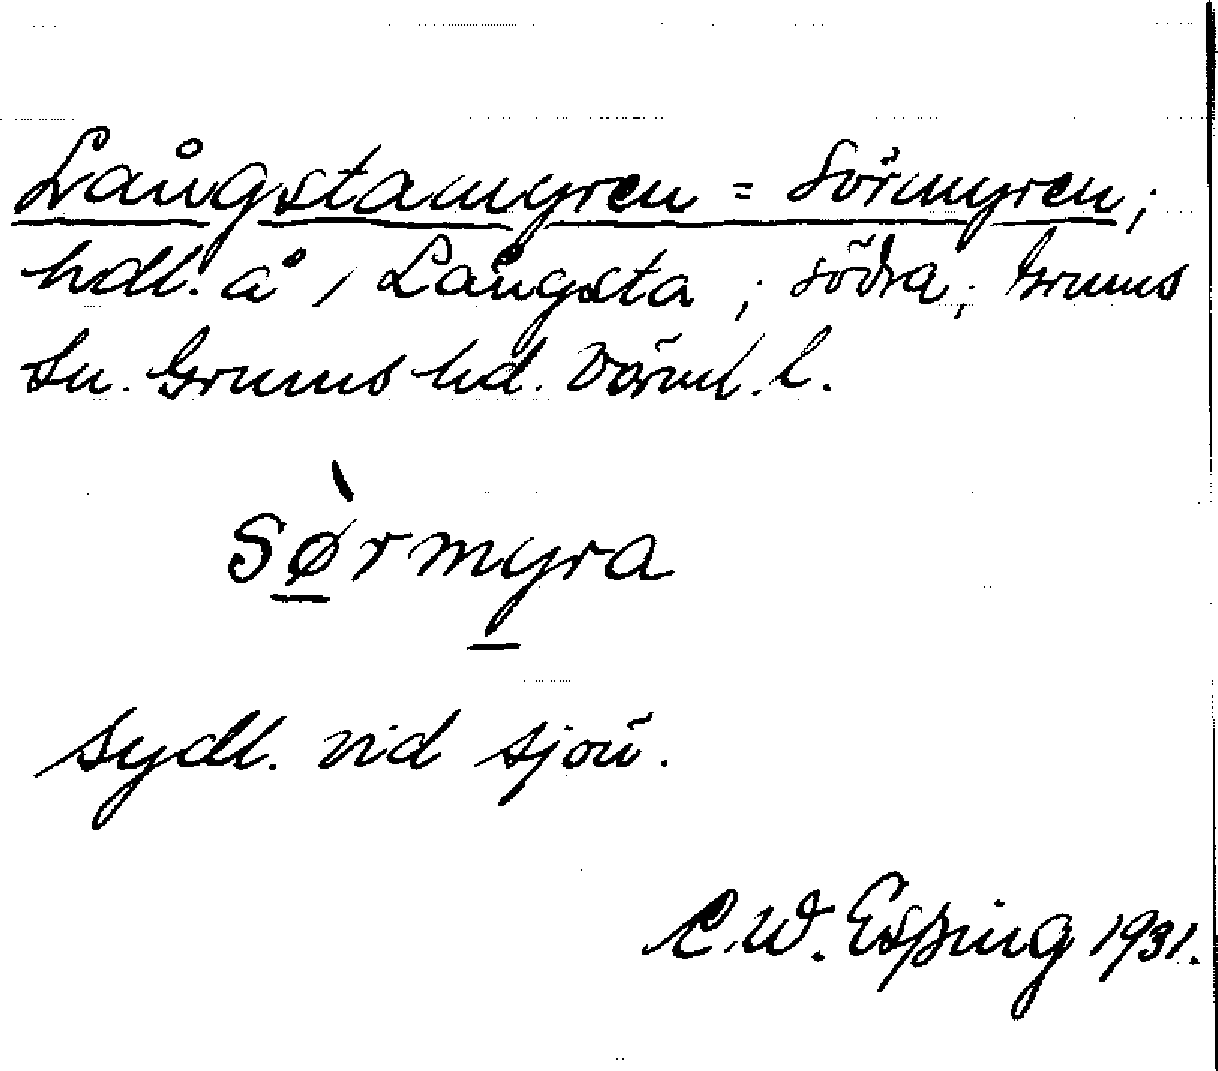 Långstamyren = Sörmyren;
hdl. å / Långsta; södra; Grums
Sn. Grums hd. Värml. l.
sørmyra
Sydl. vid sjön.
C.W. Esping 1931.